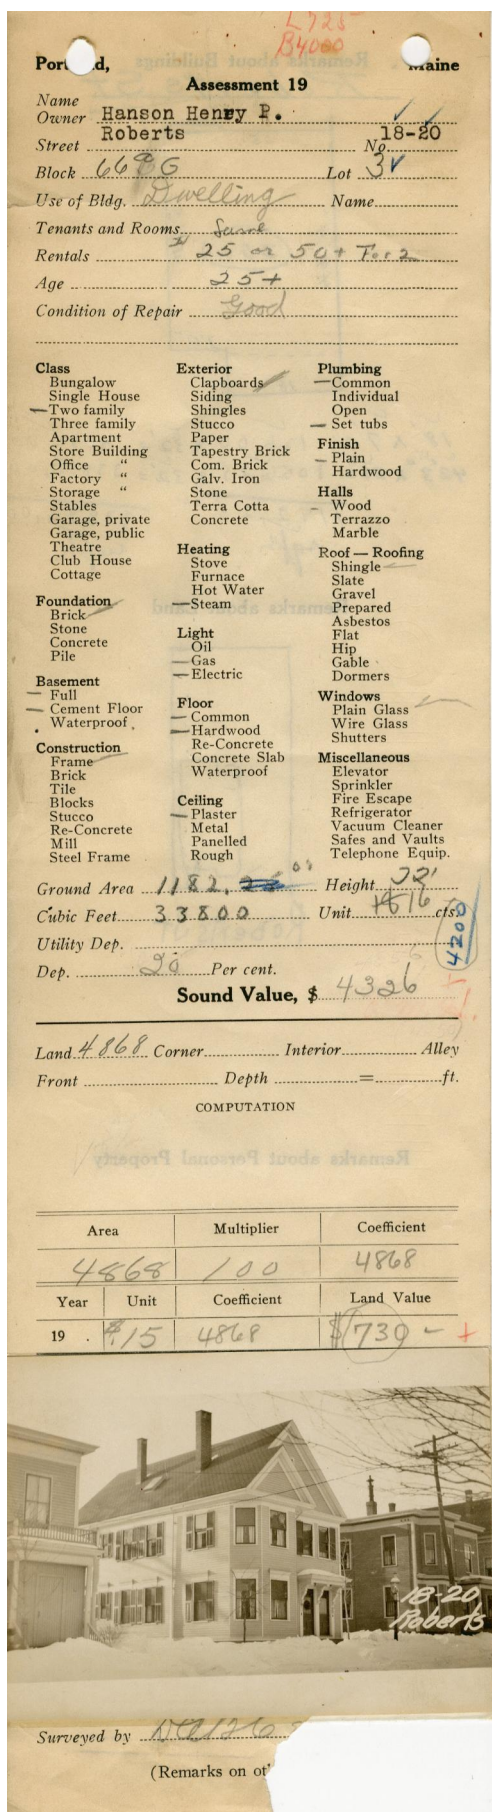 L 725
B 4000
Portland, Maine
Assessment 19
Name
Owner Hanson Henry P.
Street Roberts No. 18-20
Block 66 G Lot 3
Use of Bldg. Dwelling Name
Tenants and Rooms Same
Rentals 25 or 50+ For 2
Age 25+
Condition of Repair Good
Class
Bungalow
Single House
Two family
Three family
Apartment
Store Building
Office "
Factory "
Storage "
Stables
Garage, private
Garage, public
Theatre
Club House
Cottage
Foundation
Brick
Stone
Concrete
Pile
Basement
Full
Cement Floor
Waterproof
Construction
Frame
Brick
Tile
Blocks
Stucco
Re-Concrete
Mill
Steel Frame
Exterior
Clapboards
Siding
Shingles
Stucco
Paper
Tapestry Brick
Com. Brick
Galv. Iron
Stone
Terra Cotta
Concrete
Heating
Stove
Furnace
Hot Water
Steam
Light
Oil
Gas
Electric
Floor
Common
Hardwood
Re-Concrete
Concrete Slab
Waterproof
Ceiling
Plaster
Metal
Panelled
Rough
Plumbing
Common
Individual
Open
Set tubs
Finish
Plain
Hardwood
Halls
Wood
Terrazzo
Marble
Roof — Roofing
Shingle
Slate
Gravel
Prepared
Asbestos
Flat
Hip
Gable
Dormers
Windows
Plain Glass
Wire Glass
Shutters
Miscellaneous
Elevator
Sprinkler
Fire Escape
Refrigerator
Vacuum Cleaner
Safes and Vaults
Telephone Equip.
Ground Area 1182. Height
Cubic Feet 33800 Unit 16 cts.
4200
Utility Dep.
Dep. 20 Per cent.
Sound Value, $ 4326
Land 4868 Corner Interior Alley
Front Depth = ft.
COMPUTATION
Area Multiplier Coefficient
4868 100 4868
Year Unit Coefficient Land Value
19 . $.15 4868 $730 - +
18-20
Roberts
Surveyed by
(Remarks on ot